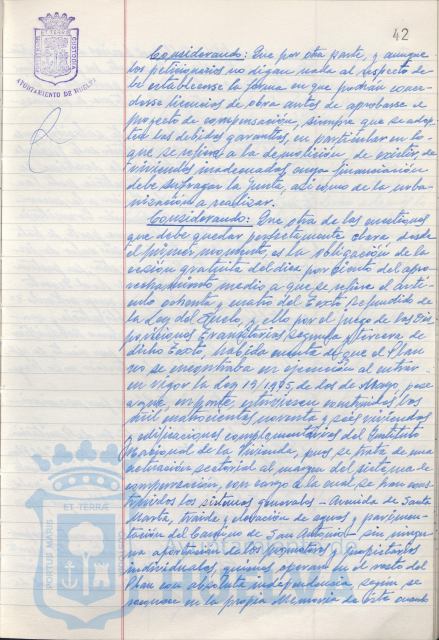 42
ET TERRÆ
CUSTODIA
AYUNTAMIENTO DE HUELVA
Considerando: Que por otra parte, y aunque
los peticionarios no digan nada al respecto de-
be establecerse la forma en que podrán conce-
derse licencias de obra antes de aprobarse el
proyecto de compensación, siempre que se adop-
ten las debidas garantías, en particular en lo
que se refiere a la demolición de
viviendas inadecuadas, cuya financiación
debe sufragar la Junta, así como de la urba-
nización a realizar.
Considerando: Que otra de las cuestiones
que debe quedar perfectamente clara desde
el primer momento, es la obligación de la
cesión gratuita del diez por ciento del apro-
vechamiento medio a que se refiere el Artí-
culo ochenta y cuatro del Texto refundido de
la Ley del Suelo, y ello por el juego de las Dis-
posiciones Transitorias segunda y tercera de
dicho Texto, habida cuenta de que el Plan
no se encontraba en ejecución al entrar
en vigor la Ley 19/1975, de dos de Mayo, pese
a que en parte estuviesen construidas las
mil cuatrocientas noventa y seis viviendas
y edificaciones complementarias del Instituto
Nacional de la Vivienda, pues se trata de una
actuación sectorial al margen del sistema de
compensación, con cargo a la cual se han cons-
truidos los sistemas generales - Avenida de Santa
Marta, traída y elevación de aguas, y pavimen-
tación del Camino de San Antonio - sin ningu-
na aportación de los promotores y propietarios
individuales, quienes operan en el resto del
Plan con absoluta independencia, según se
reconoce en la propia Memoria de éste cuando
ET TERRÆ
PORTUS MARIS
CUSTODIA